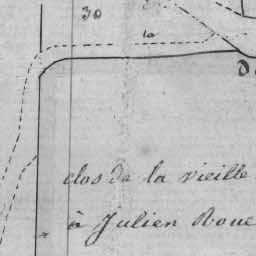 30
la
clos de la vieille
à Julien Rouc